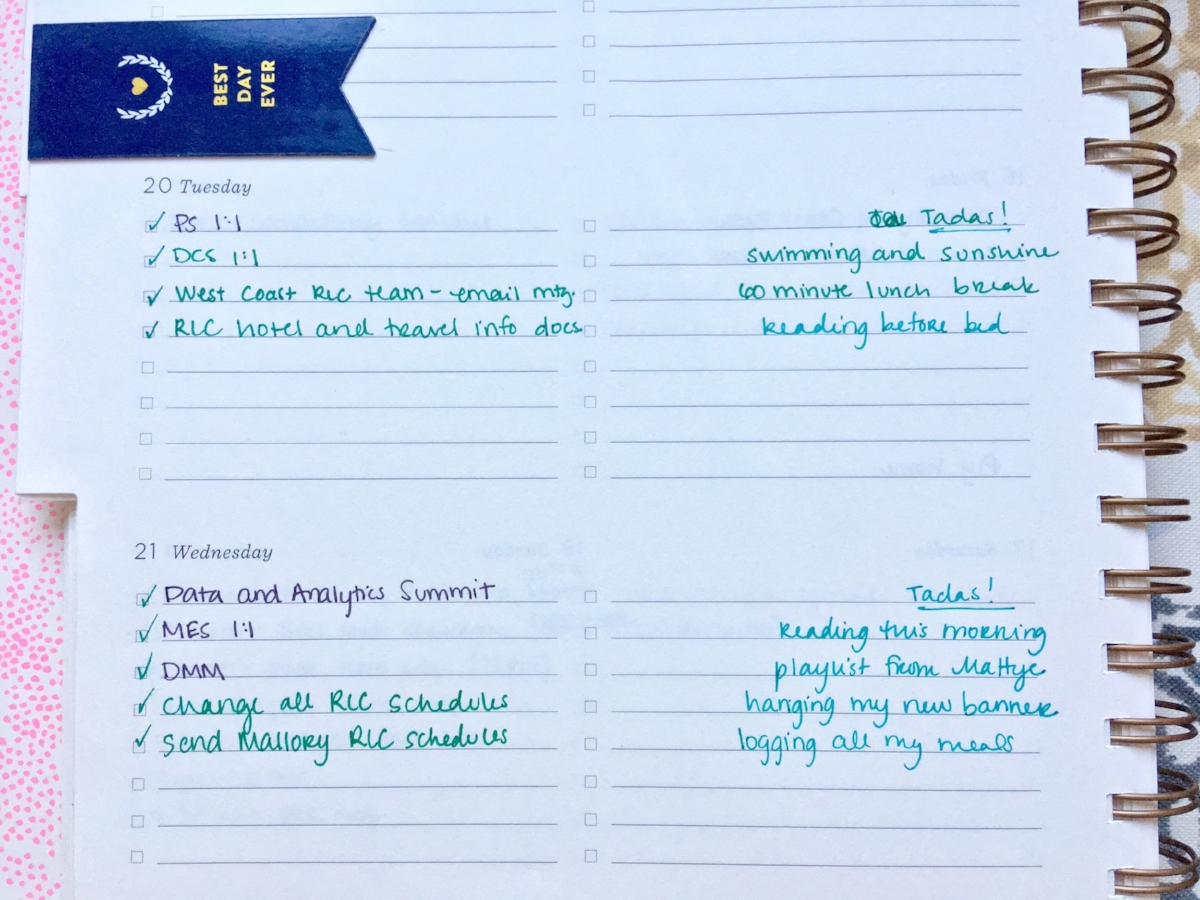 BEST
DAY
EVER
20 Tuesday
PS 1:1
DCS 1:1
West Coast RLC team - email mtg.
RLC hotel and travel info docs
Tadas!
swimming and sunshine
60 minute lunch break
Reading before bed
21 Wednesday
Data and Analytics Summit
MES 1:1
DMM
Change all RLC schedules
Send Mallory RLC schedules
Tadas!
Reading this morning
playlist from Mattye
hanging my new banner
logging all my meals